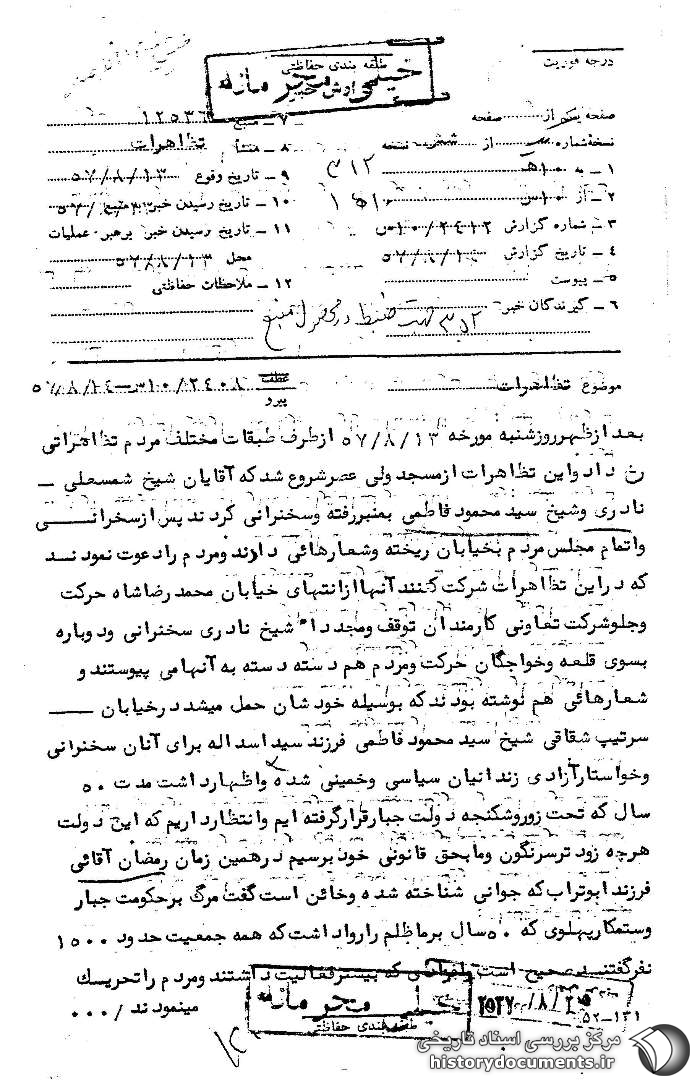 درجه فوریت
طبقه بندی حفاظتی
خیلی محرمانه
صفحه یکم از صفحه
۷ – منبع ۱۲۵۳۶
نسخه شماره از شش نسخه
۸ – منشأ تظاهرات
۱ – به ۱۰۰ هـ ۳۱۲
۹ – تاریخ وقوع ۵۷/۸/۱۳
۲ – از ۱۰ س
۱۰ – تاریخ رسیدن خبر به منبع ۵۷/۸/۱۳
۳ – شماره گزارش ۱۰/۲۴۱۲ س
۱۱ – تاریخ رسیدن خبر برهبر عملیات
۴ – تاریخ گزارش
محل ۵۷/۸/۱۳
۵ – پیوست
۱۲ – ملاحظات حفاظتی
۶ – گیرندگان خبر
۳۵۲ جهت ضبط در محصول منبع
موضوع تظاهرات
عطف ۱۰/۲۴۰۸ س – ۵۷/۸/۱۴
پیرو
بعد از ظهر روز شنبه مورخه ۵۷/۸/۱۳ از طرف طبقات مختلف مردم تظاهراتی
رخ داد و این تظاهرات از مسجد ولی عصر شروع شد که آقایان شیخ شمسعلی –
نادری وشیخ سید محمود فاطمی بمنبر رفته وسخنرانی کردند پس از سخرانی
واتمام مجلس مردم بخیابان ریخته وشعارهائی دادند ومردم را دعوت نمودند
که در این تظاهرات شرکت کنند آنها از انتهای خیابان محمد رضا شاه حرکت
وجلو شرکت تعاونی کارمندان توقف ومجددا" شیخ نادری سخنرانی ودوباره
بسوی قلعه وخواجگان حرکت ومردم هم دسته دسته به آنها می پیوستند و
شعارهائی هم نوشته بودند که بوسیله خودشان حمل میشد در خیابان ——
سرتیپ شقاقی شیخ سید محمود فاطمی فرزند سید اسداله برای آنان سخنرانی
وخواستار آزادی زندانیان سیاسی وخمینی شده واظهار داشت مدت ۵۰
سال که تحت زور وشکنجه دولت جبار قرار گرفته ایم وانتظار داریم که این دولت
هرچه زود تر سرنگون وما بحق قانونی خود برسیم در همین زمان رمضان آقائی
فرزند ابوتراب که جوانی شناخته شده وخائن است گفت مرگ بر حکومت جبار
وستمکار پهلوی که ۵۰ سال بر ما ظلم را روا داشت که همه جمعیت حدود ۱۵۰۰
نفر گفتند صحیح است که بیشتر فعالیت داشتند ومردم را تحریک
مینمودند /۰۰۰
خیلی محرمانه
طبقه بندی حفاظتی
۲۵۳۷/۸/۲۵
۵۲–۱۳۱
مرکز بررسی اسناد تاریخی
historydocuments.ir